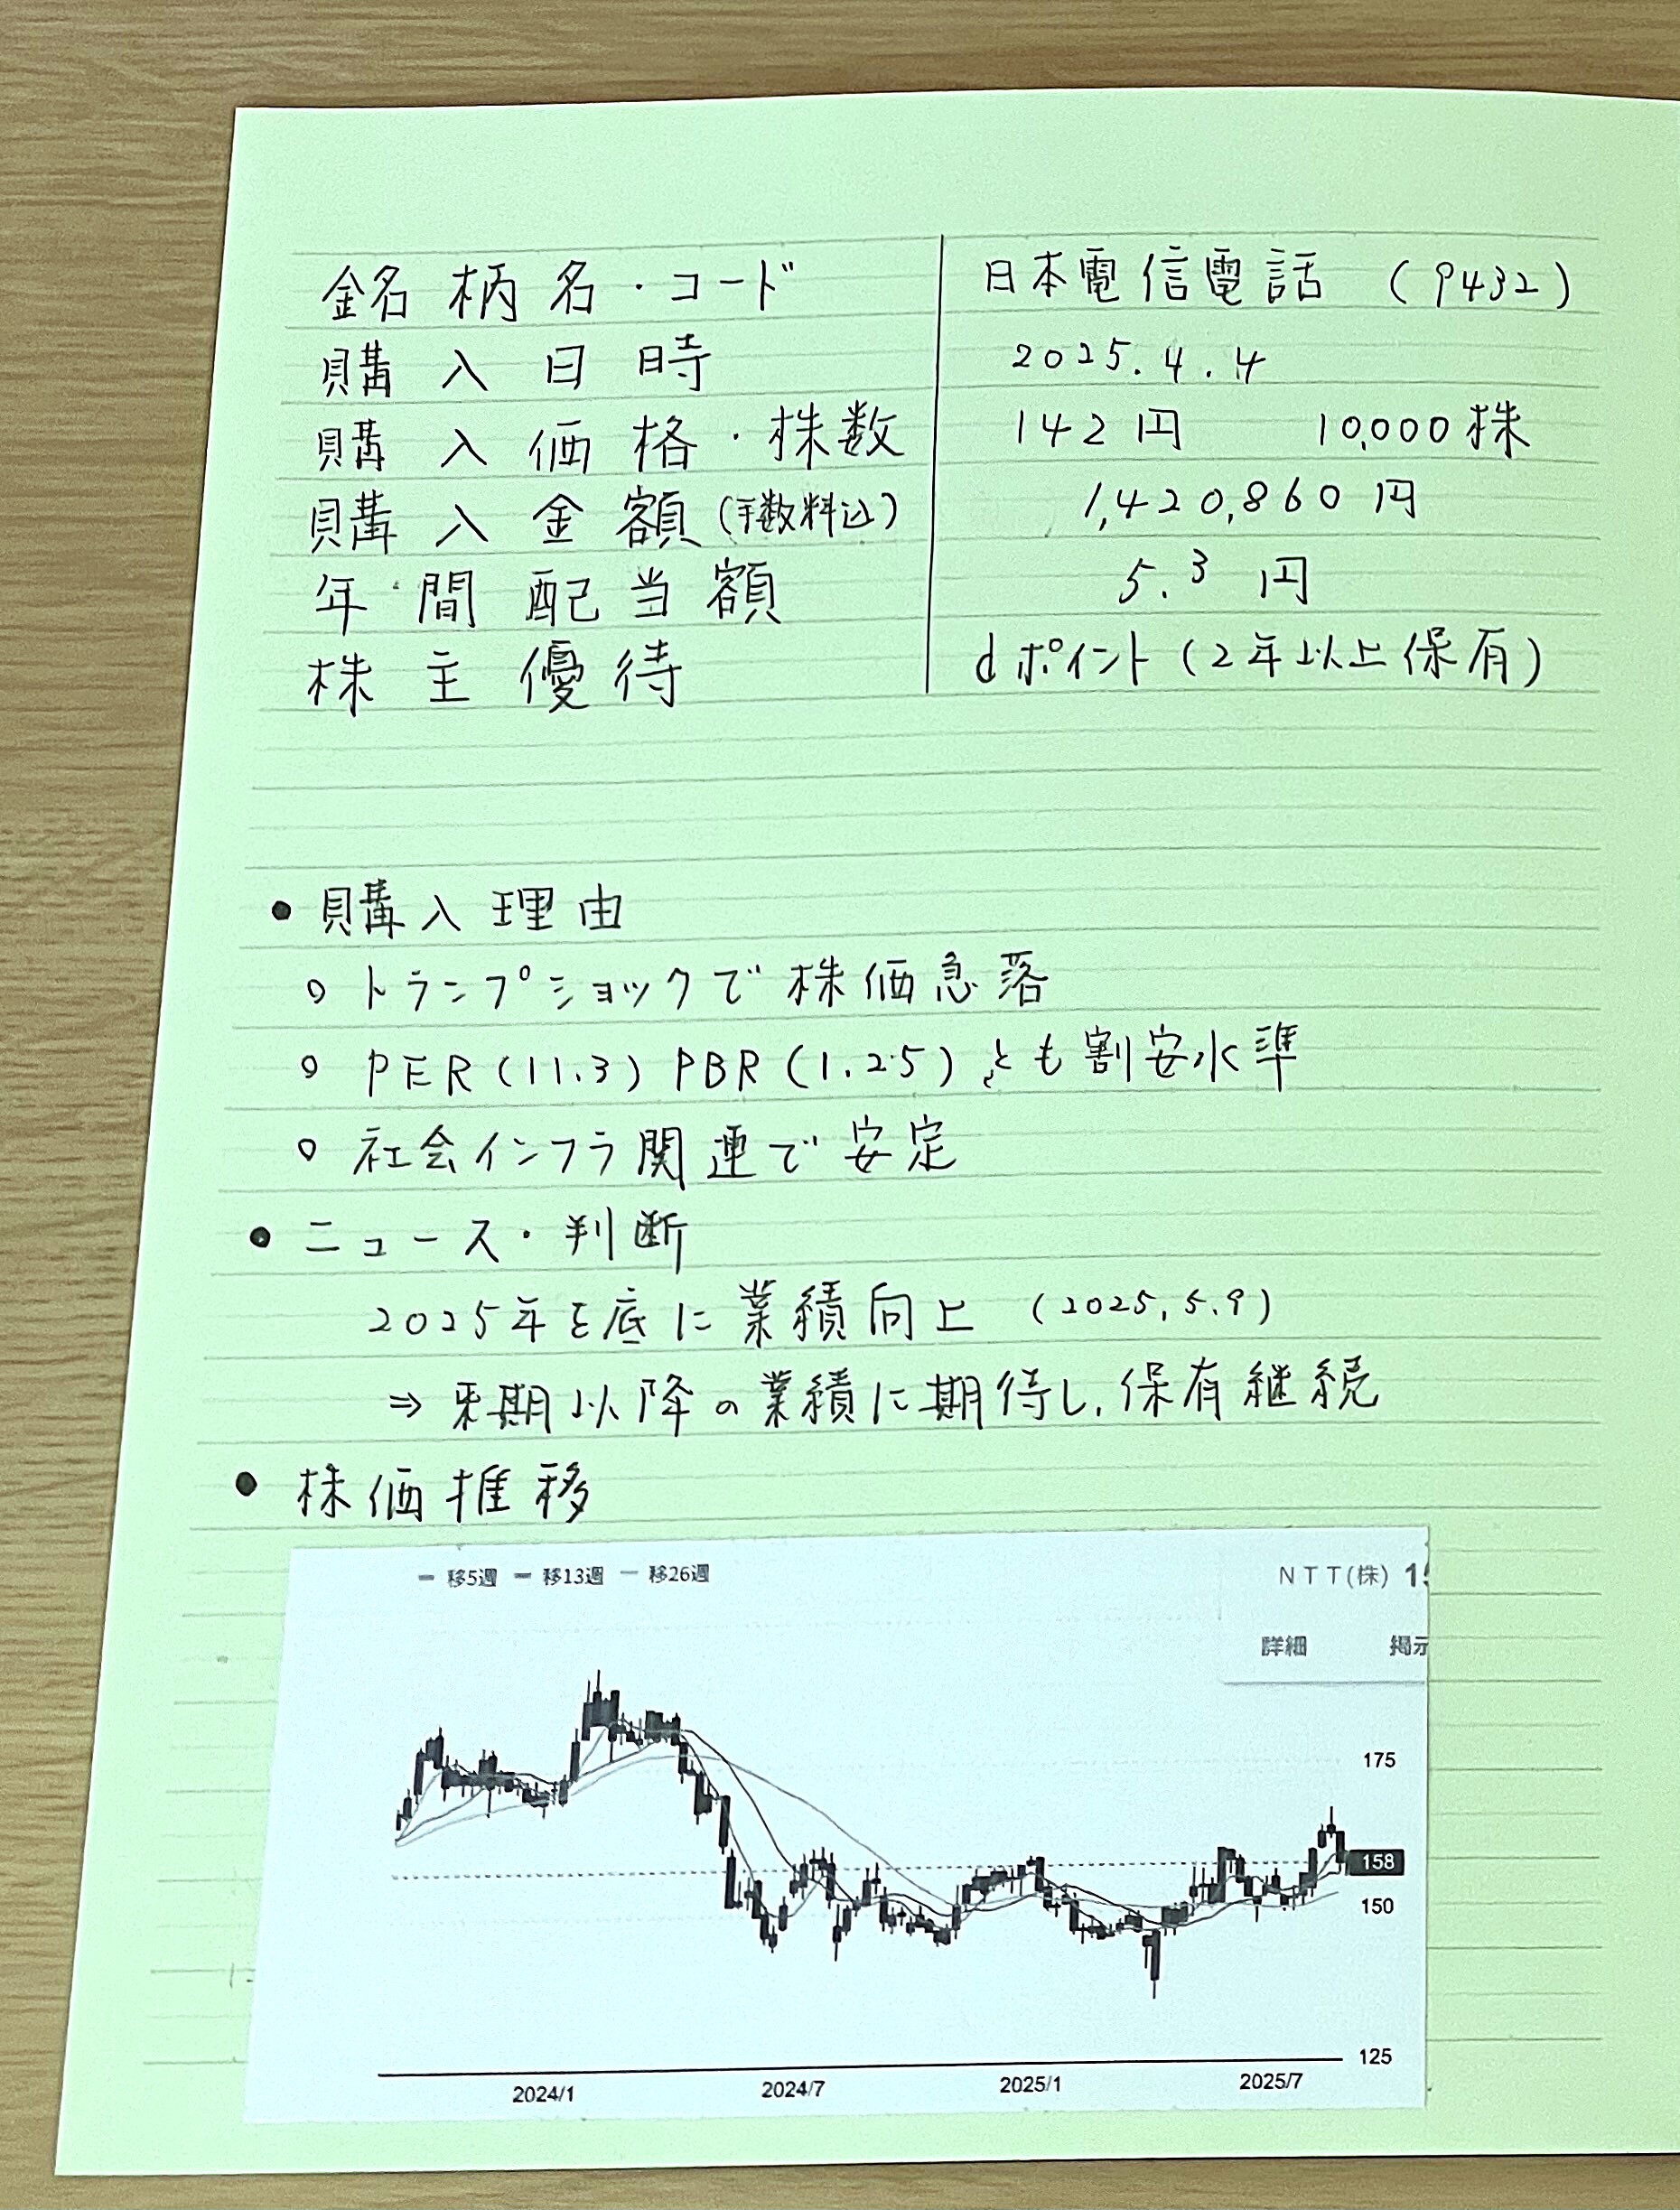 銘柄名・コード 日本電信電話 (9432)
購入日時 2025.4.4
購入価格・株数 142円 10,000株
購入金額(手数料込) 1,420,860円
年間配当額 5.3円
株主優待 dポイント(2年以上保有)
● 購入理由
○ トランプショックで株価急落
○ PER(11.3) PBR(1.25)とも割安水準
○ 社会インフラ関連で安定
● ニュース・判断
2025年を底に業績向上 (2025.5.9)
⇒ 来期以降の業績に期待し、保有継続
● 株価推移
移5週 移13週 移26週
NTT(株)
詳細
175
158
150
125
2024/1 2024/7 2025/1 2025/7